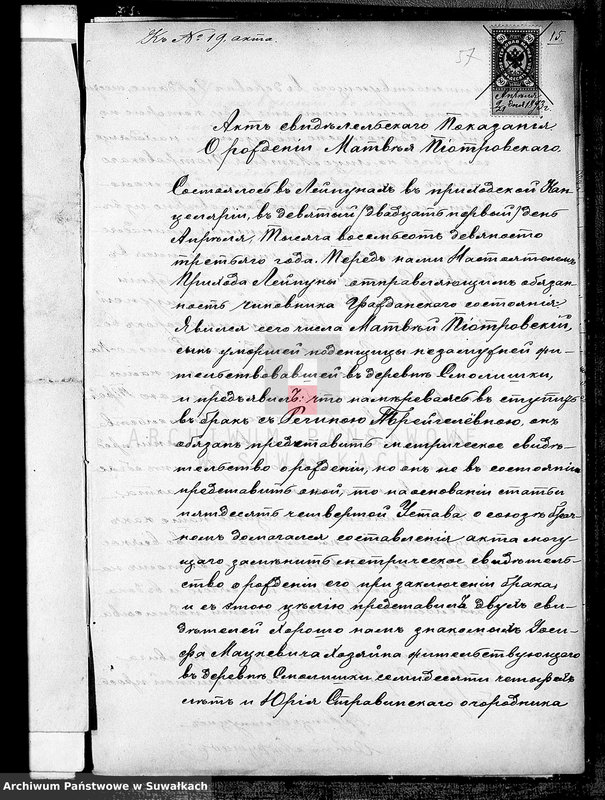 Къ № 19. акта.
57
15
Апрѣля
9/21 дня 1893 г.
Актъ свидѣтельскаго Показанія
О рожденіи Матвѣя Піотровскаго.
Состоялось въ Лейпунахъ въ приходской Кан-
целяріи, въ девятый /двадцать первый/ день
Апрѣля, Тысяча восемьсотъ девяносто
третьяго года. Передъ нами Настоятелемъ
Прихода Лейпуны отправляющимъ обязан-
ность чиновника Гражданскаго состоянія
Явился сего числа Матвѣй Піотровскій,
сынъ умершей поденщицы незамужней жи-
тельствовавшей въ деревнѣ Смолишки,
и предъявилъ: что намѣреваясь вступить
въ бракъ съ Региною онъ
обязанъ представить метрическое свидѣ-
тельство о рожденіи, но онъ не въ состояніи
представить оной, то на основаніи статьи
пятдесятъ четвертой Устава о союзѣ брач-
номъ домогался составленія акта могу-
щаго замѣнить метрическое свидѣтель-
ство о рожденіи его при заключеніи брака,
и съ этою цѣлію представилъ двухъ сви-
дѣтелей хорошо намъ знакомыхъ Іоси-
фа Мацкевича хозяина жительствующаго
въ деревнѣ Смолишки семидесяти четырехъ
лѣтъ и Юрія Стравинскаго огородника
ARCHIWUM PAŃSTWOWE
SUWAŁKACH
Archiwum Państwowe w Suwałkach